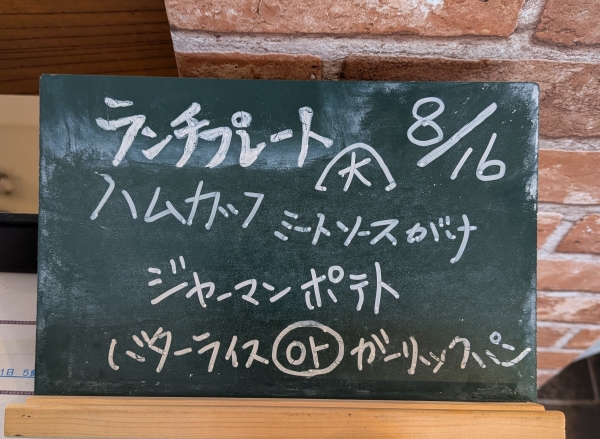 ランチプレート 8/16
ハムカツ ミートソースがけ
ジャーマンポテト
バターライス or ガーリックパン
1日 5